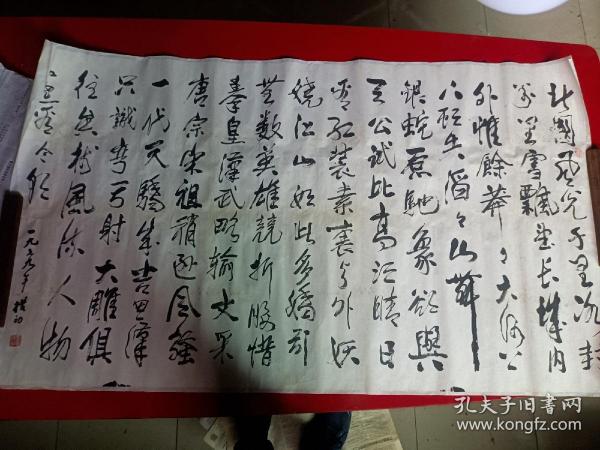 北國風光千里冰封
萬里雪飄望長城內
外惟餘莽々大河上
下頓失滔々山舞
銀蛇原馳象欲與
天公試比高須晴日
看紅裝素裹分外妖
嬈江山如此多嬌引
無數英雄競折腰惜
秦皇漢武略輸文采
唐宗宋祖稍遜風騷
一代天驕成吉思漢
只識彎弓射大雕俱
往矣數風流人物
還看今朝
一九七九年 樸初
孔夫子旧书网
www.kongfz.com